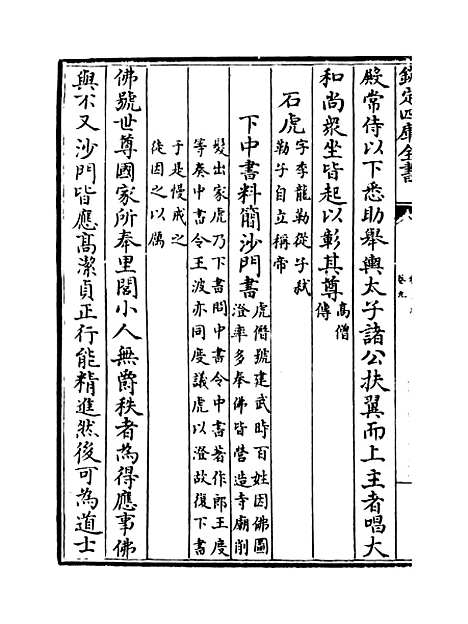 欽定四庫全書
卷九
殿常侍以下悉助舉輿太子諸公扶翼而上主者唱大
和尚衆坐皆起以彰其尊
高僧
傳
石虎
字季龍勒從子弑
勒子自立稱帝
下中書料簡沙門書
虎僭號建武時百姓因佛圖
澄率多奉佛皆營造寺廟削
髮出家虎乃下書問中書令中書著作郎王度
等奏中書令王波亦同度議虎以澄故復下書
于是慢戒之
徒因之以厲
佛號世尊國家所奉里閭小人無爵秩者為得應事佛
與不又沙門皆應高潔貞正行能精進然後可為道士